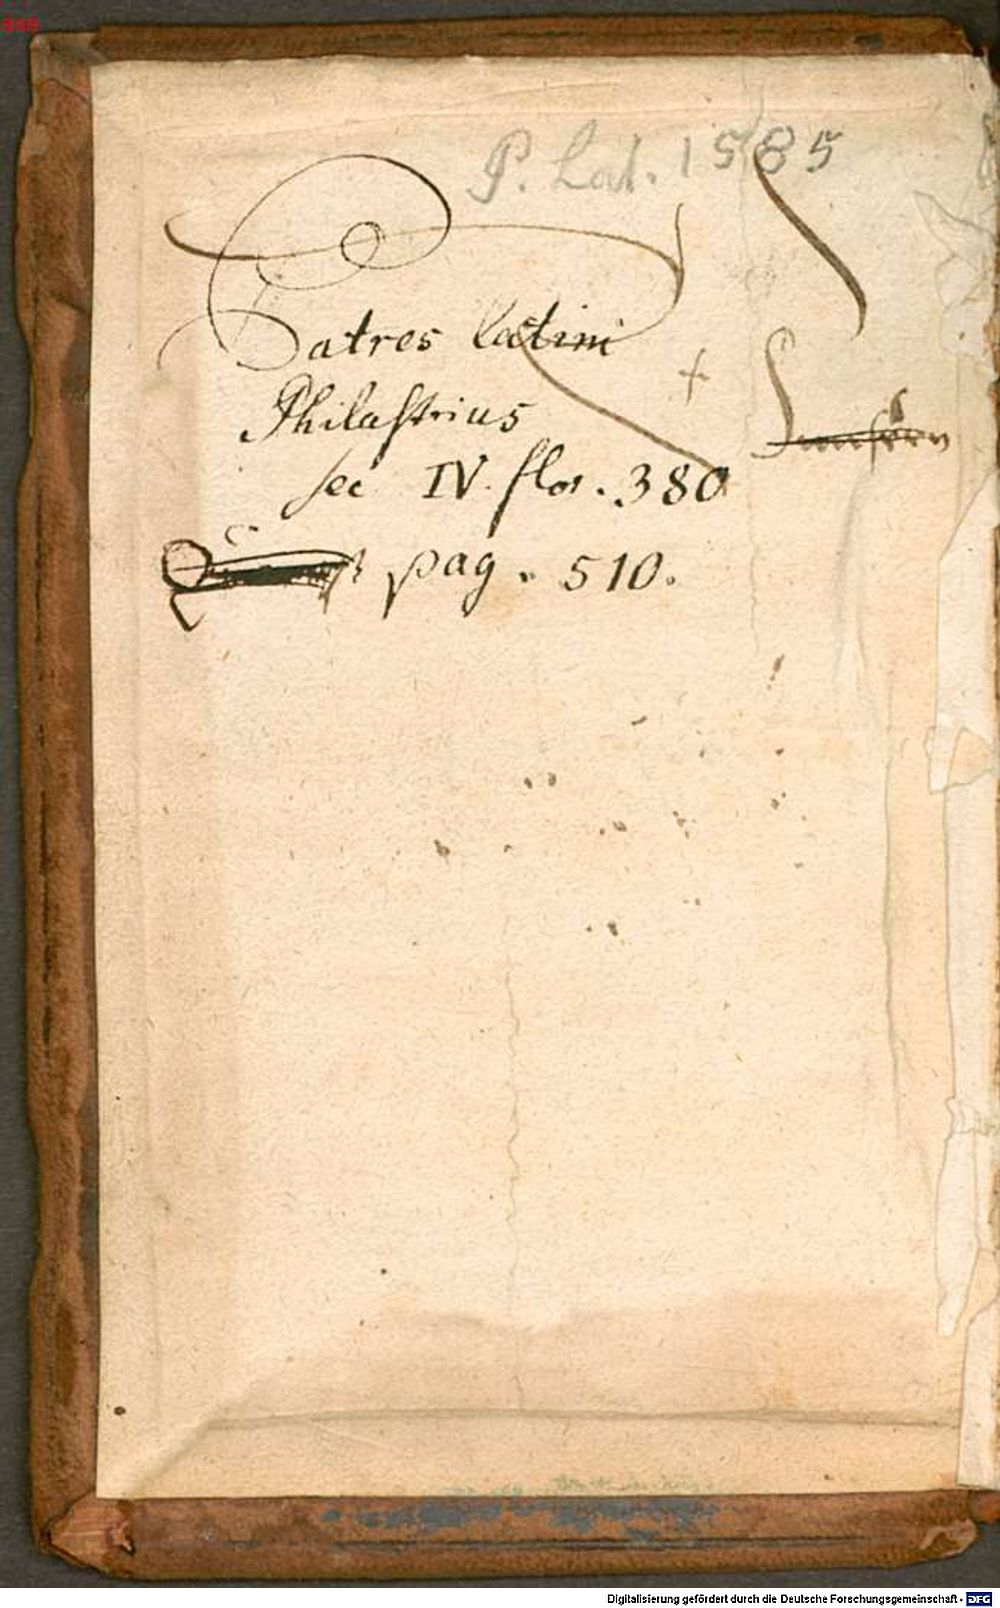 BSB
P. Lat. 1585
Patres latini
Philastrius
sec IV. flor. 380
pag. 510.
Digitalisierung gefördert durch die Deutsche Forschungsgemeinschaft - DFG